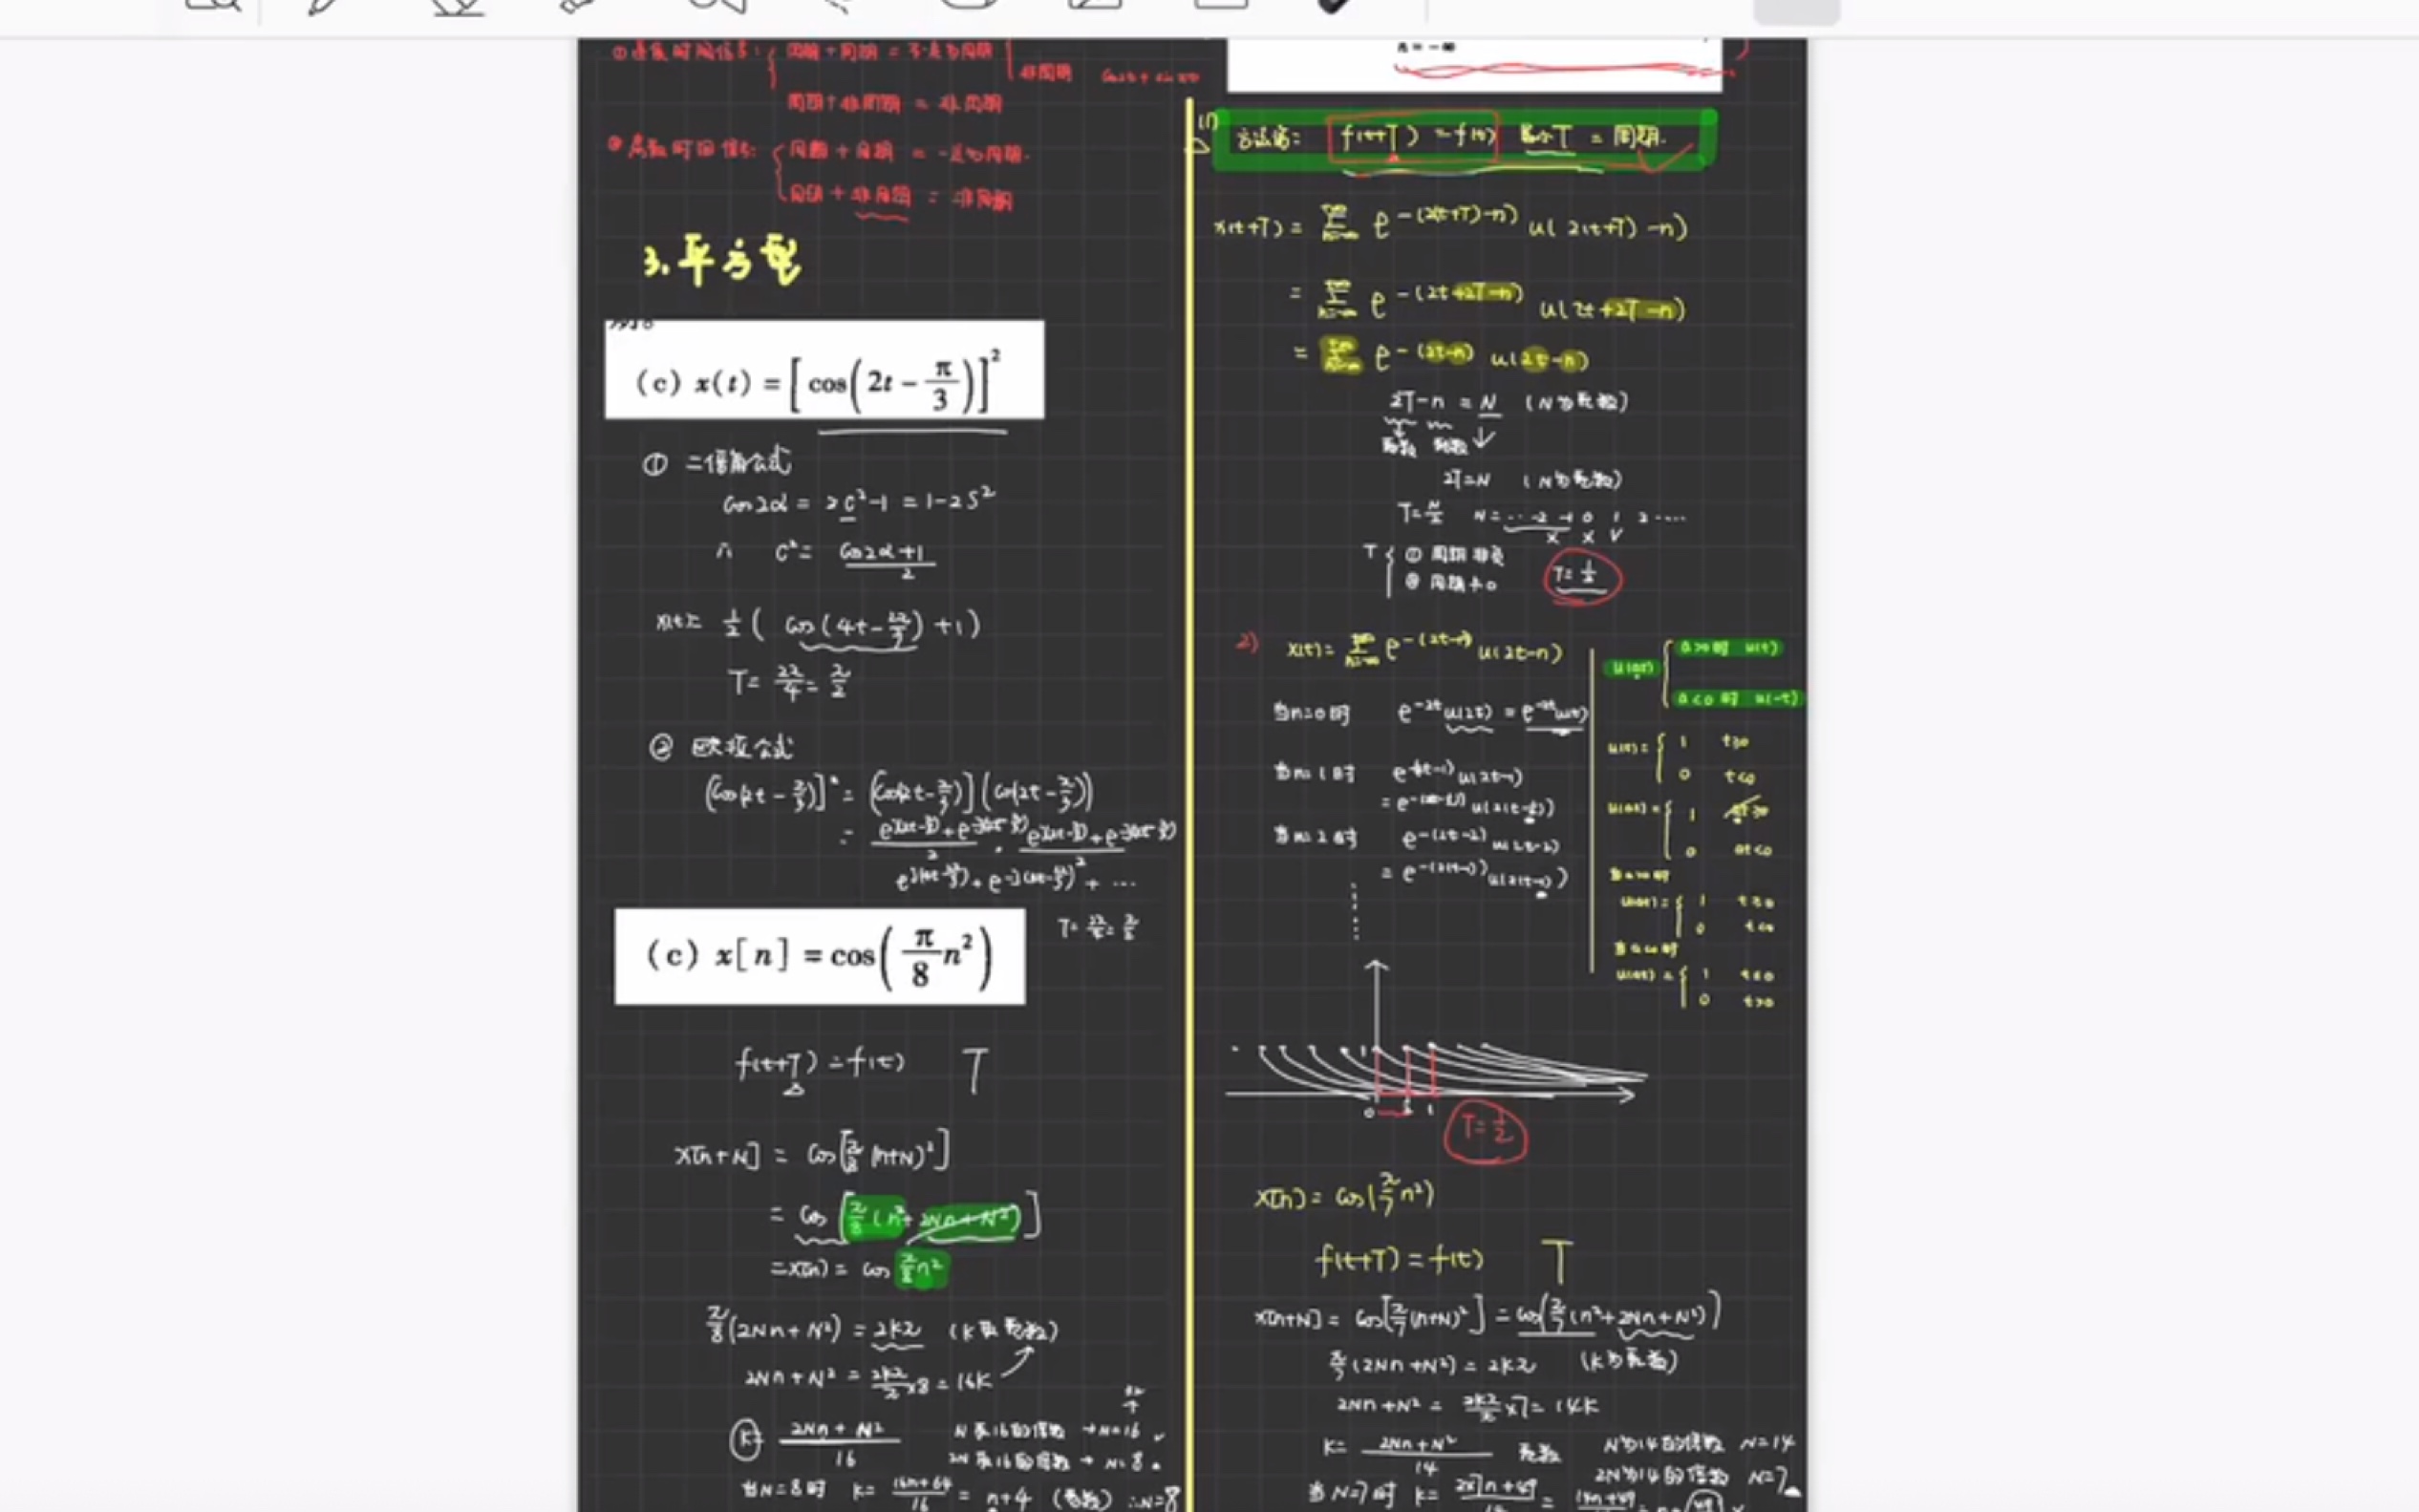 ①连续时间信号: { 周期+周期 = 不一定为周期
非周期 cos2t + sinπt
周期+非周期 = 非周期
②离散时间信号: { 周期+周期 = 一定为周期.
周期 + 非周期 = 非周期
3.平方型
(c) x(t) = [cos(2t - π/3)]²
① 二倍角公式
Cos2α = 2C²-1 = 1-2S²
∴ C² = (Cos2α+1)/2
x(t)= 1/2 ( Cos(4t-2π/3) +1)
T= 2π/4 = π/2
② 欧拉公式
[Cos(2t - π/3)]² = [Cos(2t-π/3)] [Cos(2t-π/3)]
= (e^{j(2t-π/3)}+e^{-j(2t-π/3)})/2 · (e^{j(2t-π/3)}+e^{-j(2t-π/3)})/2
T= 2π/4 = π/2
(c) x[n] = cos(π/8 n²)
f(t+T) = f(t) T
x[n+N] = Cos[π/8 (n+N)²]
= Cos[π/8 (n²+2Nn+N²)]
=x[n] = Cos π/8 n²
π/8 (2Nn+N²) = 2kπ (k取整数)
2Nn+N² = 2kπ/π ×8 = 16k
k= (2Nn+N²)/16
N取16的倍数 → N=16
2N取16的倍数 → N=8
当N=8时 k= (16n+64)/16 = n+4 (整数) ∴N=8
n = -∞
(1)
方法论: f(t+T) = f(t) 最小T = 周期.
x(t+T) = Σ e^{-(2(t+T)-n)} u(2(t+T)-n)
= Σ e^{-(2t+2T-n)} u(2t+2T-n)
= Σ e^{-(2t-n)} u(2t-n)
2T-n = N (N为整数)
整数 整数
2T=N (N为整数)
T=N/2 N= ... -2 -1 0 1 2 ....
x x √
T { ① 周期非负
② 周期≠0
T=1/2
2) x(t)= Σ e^{-(2t-n)} u(2t-n)
u(at) { a>0时 u(t)
a<0时 u(-t)
当n=0时 e^{-2t}u(2t) = e^{-2t}u(t)
当n=1时 e^{-(2t-1)}u(2t-1)
= e^{-(2(t-1/2))} u(2(t-1/2))
当n=2时 e^{-(2t-2)} u(2t-2)
= e^{-(2(t-1))} u(2(t-1))
u(t)= { 1 t≥0
0 t<0
u(at)= { 1 at≥0
0 at<0
当a>0时
u(at)= { 1 t≥0
0 t<0
当a<0时
u(at)= { 1 t≤0
0 t>0
1
0 1/2 1
T=1/2
x[n] = Cos(π/7 n²)
f(t+T) = f(t) T
x[n+N] = Cos[π/7 (n+N)²] = Cos[π/7 (n²+2Nn+N²)]
π/7 (2Nn+N²) = 2kπ (k为整数)
2Nn+N² = 2kπ/π ×7 = 14k
k= (2Nn+N²)/14 整数
N为14的倍数 N=14
2N为14的倍数 N=7
当N=7时 k= (2×7n+49)/14 = (14n+49)/14